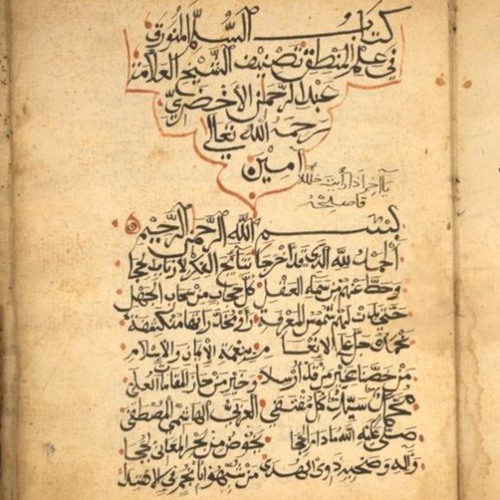 كتاب السلم المنورق
في علم المنطق تصنيف الشيخ العلامة
عبد الرحمن الأخضري
رحمه الله تعالى
امين
بسم الله الرحمن الرحيم
الحمد لله الذي قد أخرجا نتائج الفكر لارباب الحجا
وحط عنهم من سماء العقل كل حجاب من سحاب الجهل
حتى بدت لهم شموس المعرفة راوا مخدراتها منكشفة
نحمده جل على الانعام بنعمة الايمان والاسلام
من خصنا بخير من قد ارسلا وخير من حاز المقامات العلى
محمد سيد كل مقتفى العربي الهاشمي المصطفى
صلى عليه الله ما دام الحجا يخوض من بحر المعاني لججا
واله وصحبه ذوي الهدى من شبهوا بانجم في الاهتدا